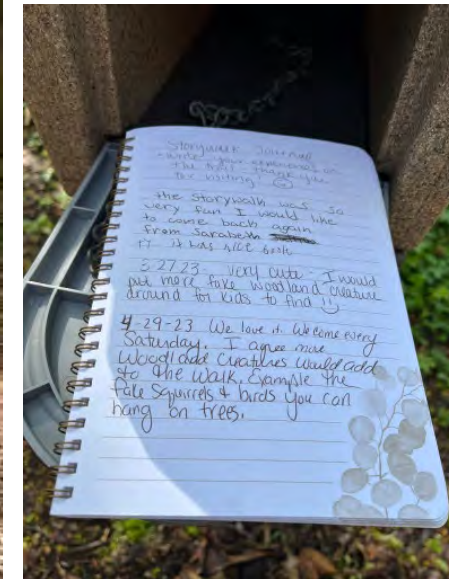 Storywalk Journal
- Write your experience on
the trail. Thank you
for visiting! ☺
the Storywalk was so
very fun I would like
to come back again
from Sarabeth
it was nice
3-27-23 - Very cute - I would
put more fake woodland creature
around for kids to find
4-29-23 We love it. We come every
Saturday. I agree more
woodland creatures would add
to the walk. Example the
fake squirrels & birds you can
hang on trees.